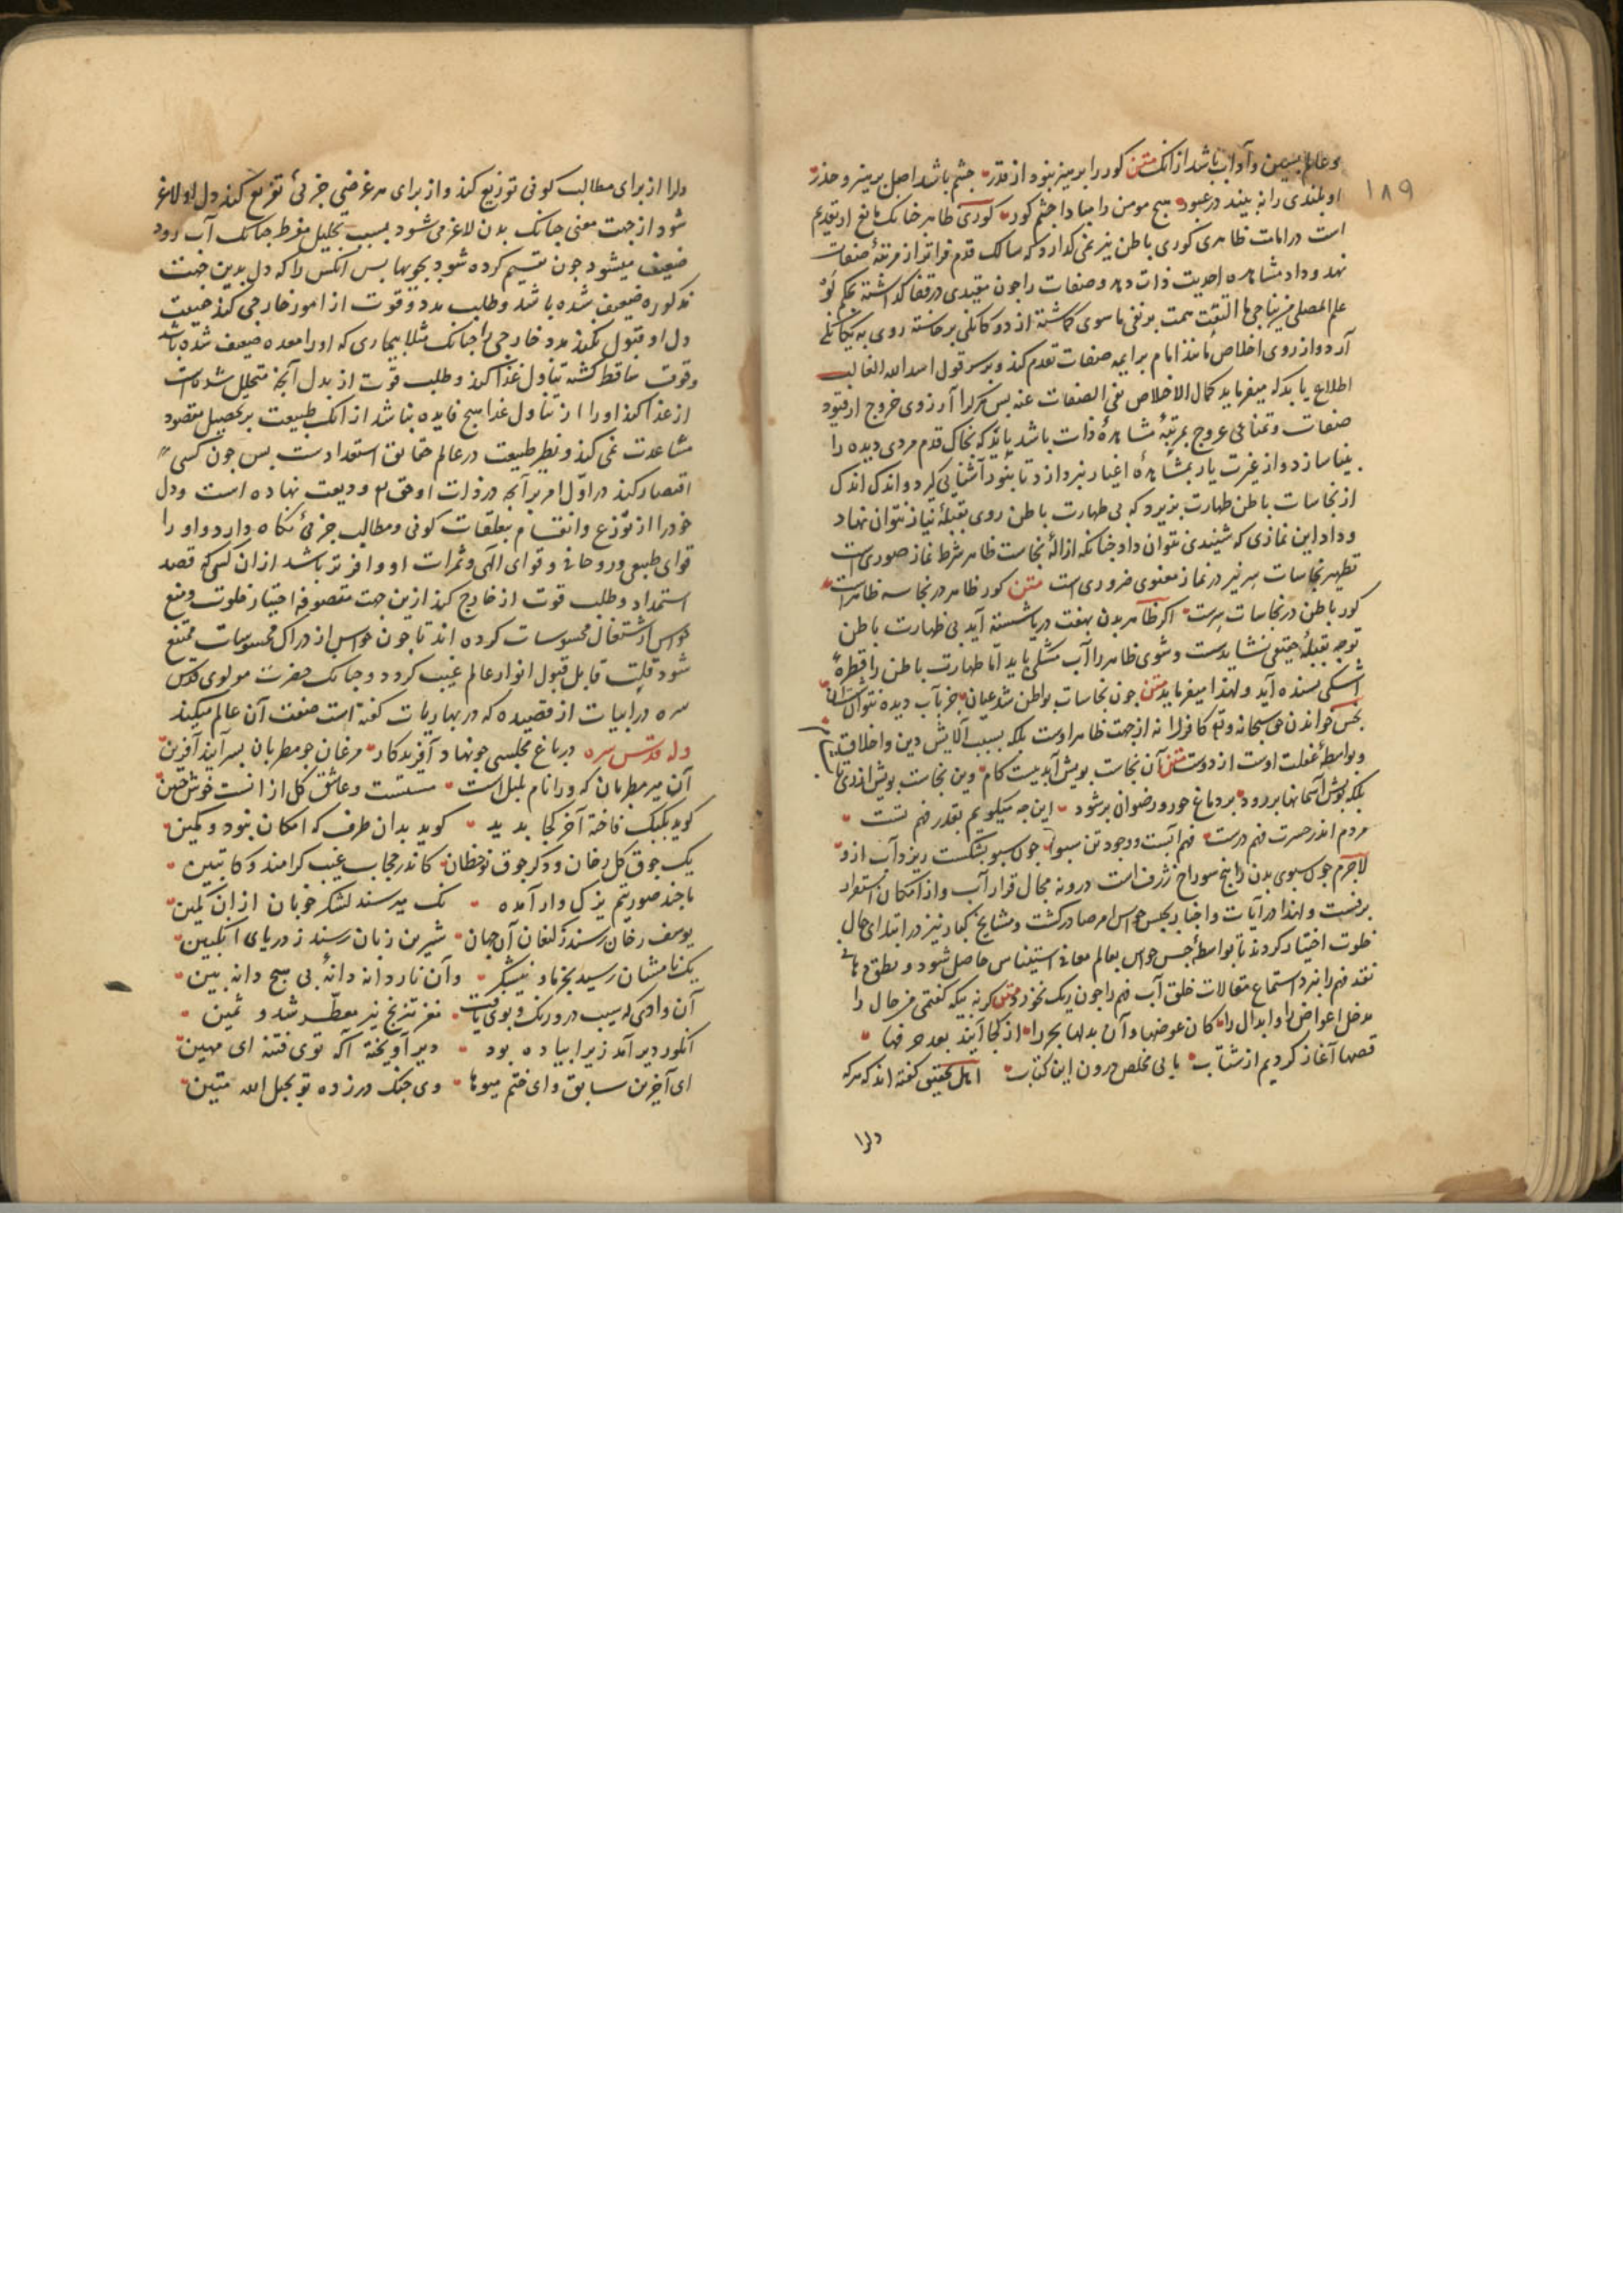 ۱۸۹
و عالم بسنن و آداب باشد از انک متن کور را پرهیز نبود از قذر چشم باشد اصل پرهیز و حذر
او بلندی را نه بیند در عبور هیچ مومن را مبادا چشم کور کوری ظاهر چنانک مانع از تقدیم
است در امامت ظاهری کوری باطن نیز نمی گذارد که سالک قدم فراتر از مرتبهٔ صفات
نهد و داد مشاهده احدیت ذات دهد و صفات را چون مقتدی در قفا گذاشته بحکم لو
علم المصلی من یناجی ما التفت همت بر نفی ماسوی گماشته از دوگانگی برخاسته روی به یگانگی
آرد و از روی اخلاص مانند امام بر ایمه صفات تقدم کند و بر سر قول اسد الله الغالب
اطلاع یابد که میفرماید کمال الاخلاص نفی الصفات عنه پس هر کرا آرزوی خروج از قیود
صفات و تمنای عروج بمرتبهٔ مشاهدهٔ ذات باشد باید که بخاک قدم مردی دیده را
بینا سازد و از غیرت یار بمشاهدهٔ اغیار نپردازد تا بنور آشنایی گردد و اندک اندک
از نجاسات باطن طهارت پذیرد که بی طهارت باطن روی بقبلهٔ نیاز نتوان نهاد
و داد این نمازی که شنیدی نتوان داد چنانکه ازالهٔ نجاست ظاهر شرط نماز صوری است
تطهیر نجاسات سر نیز در نماز معنوی ضروری است متن کور ظاهر در نجاسه ظاهرست
کور باطن در نجاسات سرست اگر ظاهر بدن بهفت دریا شسته آید بی طهارت باطن
توجه بقبلهٔ حقیقی نشاید شست و شوی ظاهر را آب مشکی باید اما طهارت باطن را قطرهٔ
اشکی بسنده آید و لهذا میفرماید متن چون نجاسات بواطن شد عیان جز بآب دیده نتوان شست آن
نجس خواندن حق سبحانه و تع کافر را نه از جهت ظاهر اوست بلکه بسبب آلایش دین و اخلاق
و بواسطهٔ غفلت اوست از دوست متن آن نجاست بویش آید بیست کام وین نجاست بویش از ری تا
بلکه بویش آسمانها بر رود بر دماغ حور و رضوان بر شود این چه میگویم بقدر فهم تست
مردم اندر حسرت فهم درست فهم آبست و وجود تن سبو چون سبو بشکست ریزد آب ازو
لاجرم چون سبوی بدن را پنج سوراخ ژرف است درو نه مجال قرار آب و از امکان استقرار
برنست و لهذا در آیات و اخبار بحبس حواس امر صادر گشت و مشایخ کبار نیز در ابتدای حال
خلوت اختیار کردند تا بواسطهٔ حبس حواس بعالم معانی استیناس حاصل شود و نطق دهان
نقد فهم را نبرد و استماع مقالات خلق آب فهم را چون ریک نخورد متن گر نه بیگه گفتمی من حال را
مدخل اعواض را و ابدال را کان عوضها و آن بدلها بحر را از کجا آیند بعد حرفها
قصها آغاز کردیم از شتاب با بی مخلص درون این کتاب اهل تحقیق گفته اند که هر که
دلرا
دلرا از برای مطالب کونی توزیع کند و از برای هر غرضی جزئی تفریع کند دل او لاغر
شود از جهت معنی چنانک بدن لاغر می شود بسبب تحلیل مفرط چنانک آب رود
ضعیف میشود چون تقسیم کرده شود بجویها پس انکس را که دل بدین جهت
مذکوره ضعیف شده باشد و طلب مدد و قوت از امور خارجی کند طبیعت
دل او قبول نکند مدد خارجی را چنانک مثلا بیماری که او را معده ضعیف شده باشد
و قوت ساقط گشته تناول غذا کند و طلب قوت از بدل آنچه متحلل شده است
از غذا کند او را از تناول غذا هیچ فایده نباشد از انک طبیعت بر تحصیل مقصود
مساعدت نمی کند و نظیر طبیعت در عالم حقایق استعدادست پس چون کسی
اقتصار کند در اول امر بر آنچه در ذات او حق تع ودیعت نهاده است و دل
خود را از توزع و انقسام بتعلقات کونی و مطالب جزئی نگاه دارد و او را
قوای طبیعی و روحانی و قوای الهی و ثمرات او وافرتر باشد از ان کسی که قصد
استمداد و طلب قوت از خارج کند ازین جهت متصوفه اختیار خلوت و منع
حواس از اشتغال محسوسات کرده اند تا چون حواس از دراک محسوسات ممتنع
شود قلب قابل قبول انوار عالم غیب گردد و چنانک حضرت مولوی قدس
سره در ابیات از قصیده که در بهاریات گفته است صفت آن عالم میکند
وله قدس سره در باغ مجلسی چو نهاد آفریدگار مرغان چو مطربان بسرایند آفرین
آن میر مطربان که ورا نام بلبل است مستست و عاشق گل از انست خوش حنین
گوید بکبک فاخته آخر کجا بدید گوید بدان طرف که امکان نبود و مکین
یک جوق گل رخان و دگر جوق نوخطان کاندر حجاب غیب کرامند و کاتبین
ما چند صورتیم یزک وار آمده نک میرسند لشکر خوبان از ان کمین
یوسف رخان رسند ز کنعان آن جهان شیرین زبان رسند ز دریای انگبین
یک نامشان رسید بخرما و نیشکر وان نار دانه دانهٔ بی هیچ دانه بین
آن وادی که سیب درو رنگ و بوی یافت مغز ترنج نیز معطر شد و ثمین
انگور دیر آمد زیرا پیاده بود دیر آو پخته آ که توی فتنه ای مهین
ای آخرین سابق و ای ختم میوها وی چنگ در زده تو بحبل الله متین